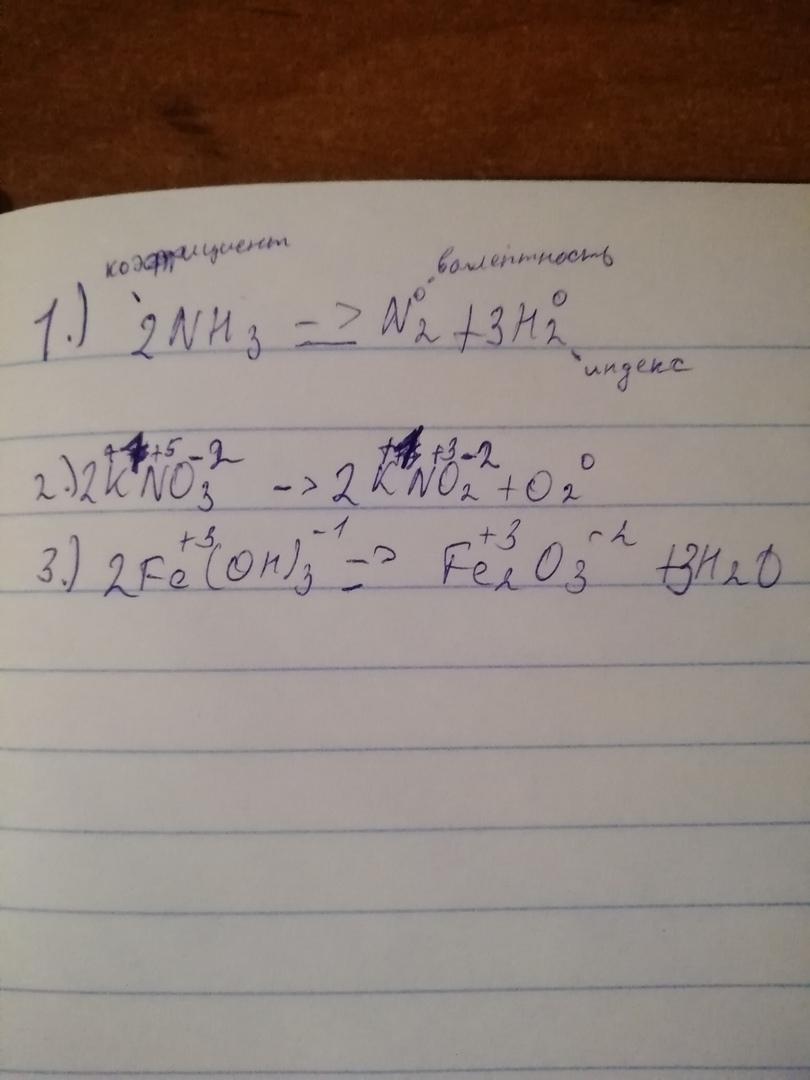 коэффициент валентность
1.) 2NH₃ => N₂⁰ + 3H₂⁰
индекс
2.) 2K⁺¹N⁺⁵O₃⁻² -> 2K⁺¹N⁺³O₂⁻² + O₂⁰
3.) 2Fe⁺³(OH)₃⁻¹ => Fe₂⁺³O₃⁻² + 3H₂O